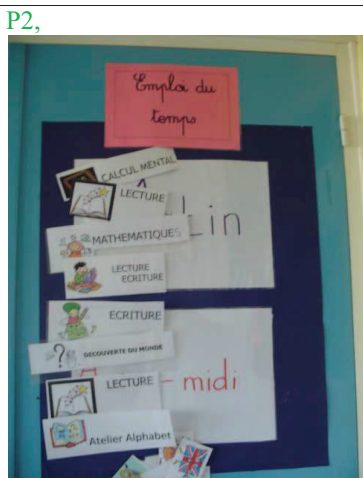 P2,
Emploi du
temps
CALCUL MENTAL
LECTURE
MATHEMATIQUES
LECTURE
ECRITURE
ECRITURE
?
DECOUVERTE DU MONDE
LECTURE
- midi
Atelier Alphabet